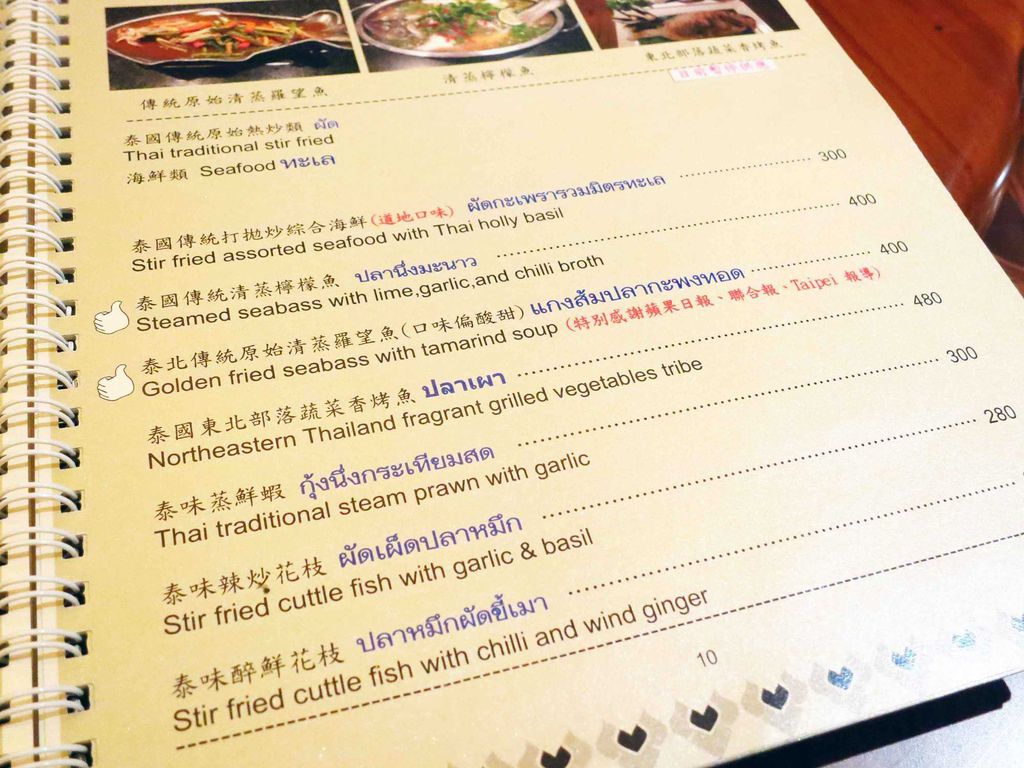 傳統原始清蒸羅望魚
清蒸檸檬魚
東北部落蔬菜香烤魚
目前暫停供應
泰國傳統原始熱炒類 ผัด
Thai traditional stir fried
海鮮類 Seafood ทะเล
泰國傳統打拋炒綜合海鮮(道地口味) ผัดกะเพรารวมมิตรทะเล 300
Stir fried assorted seafood with Thai holly basil
泰國傳統清蒸檸檬魚 ปลานึ่งมะนาว 400
Steamed seabass with lime,garlic,and chilli broth
泰北傳統原始清蒸羅望魚(口味偏酸甜) แกงส้มปลากะพงทอด 400
Golden fried seabass with tamarind soup (特別感謝蘋果日報、聯合報、Taipei 報導)
泰國東北部落蔬菜香烤魚 ปลาเผา 480
Northeastern Thailand fragrant grilled vegetables tribe
泰味蒸鮮蝦 กุ้งนึ่งกระเทียมสด 300
Thai traditional steam prawn with garlic
泰味辣炒花枝 ผัดเผ็ดปลาหมึก 280
Stir fried cuttle fish with garlic & basil
泰味醉鮮花枝 ปลาหมึกผัดขี้เมา
Stir fried cuttle fish with chilli and wind ginger
10